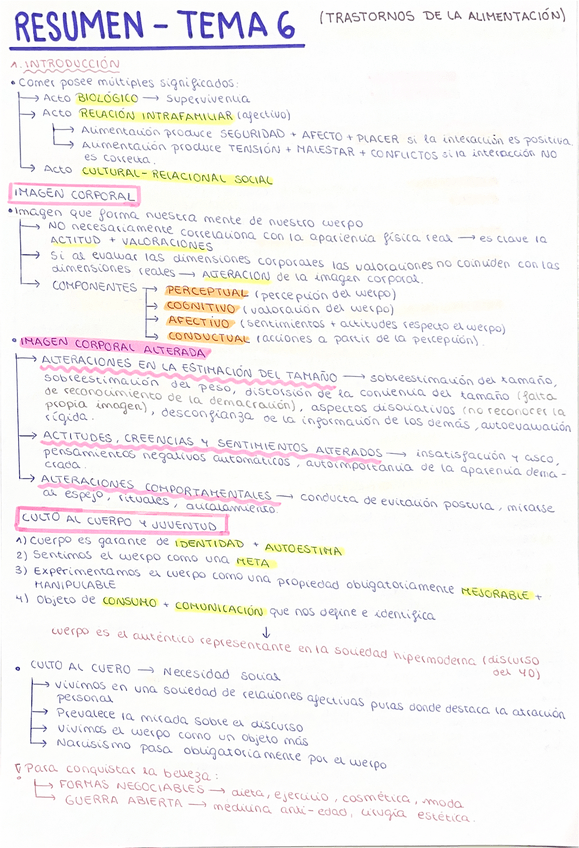 RESUMEN - TEMA 6 (TRASTORNOS DE LA ALIMENTACIÓN)
1. INTRODUCCIÓN
• Comer posee múltiples significados:
→ Acto BIOLÓGICO → supervivencia
→ Acto RELACIÓN INTRAFAMILIAR (afectivo)
→ Alimentación produce SEGURIDAD + AFECTO + PLACER si la interacción es positiva.
→ Alimentación produce TENSIÓN + MALESTAR + CONFLICTOS si la interacción NO
es correcta.
→ Acto CULTURAL-RELACIONAL SOCIAL
IMAGEN CORPORAL
• Imagen que forma nuestra mente de nuestro cuerpo
→ NO necesariamente correlaciona con la apariencia física real → es clave la
ACTITUD + VALORACIONES
→ Si al evaluar las dimensiones corporales las valoraciones no coinciden con las
dimensiones reales → ALTERACIÓN de la imagen corporal.
→ COMPONENTES → PERCEPTUAL (percepción del cuerpo)
→ COGNITIVO (valoración del cuerpo)
→ AFECTIVO (sentimientos + actitudes respecto el cuerpo)
→ CONDUCTUAL (acciones a partir de la percepción).
• IMAGEN CORPORAL ALTERADA
→ ALTERACIONES EN LA ESTIMACIÓN DEL TAMAÑO → sobreestimación del tamaño,
sobreestimación del peso, distorsión de la conciencia del tamaño (falta
de reconocimiento de la demacración), aspectos disociativos (no reconocer la
propia imagen), desconfianza de la información de los demás, autoevaluación
rígida.
→ ACTITUDES, CREENCIAS Y SENTIMIENTOS ALTERADOS → insatisfacción y asco,
pensamientos negativos automáticos, autoimportancia de la apariencia dema-
crada.
→ ALTERACIONES COMPORTAMENTALES → conducta de evitación postura, mirarse
al espejo, rituales, aucalamiento.
CULTO AL CUERPO Y JUVENTUD
1) Cuerpo es garante de IDENTIDAD + AUTOESTIMA
2) Sentimos el cuerpo como una META
3) Experimentamos el cuerpo como una propiedad obligatoriamente MEJORABLE +
MANIPULABLE
4) Objeto de CONSUMO + COMUNICACIÓN que nos define e identifica
↓
cuerpo es el auténtico representante en la sociedad hipermoderna (discurso
del YO)
• CULTO AL CUERO → Necesidad social
→ vivimos en una sociedad de relaciones afectivas puras donde destaca la atracción
personal
→ Prevalece la mirada sobre el discurso
→ Vivimos el cuerpo como un objeto más
→ Narcisismo pasa obligatoriamente por el cuerpo
Para conquistar la belleza:
→ FORMAS NEGOCIABLES → dieta, ejercicio, cosmética, moda
→ GUERRA ABIERTA → medicina anti-edad, cirugía estética.